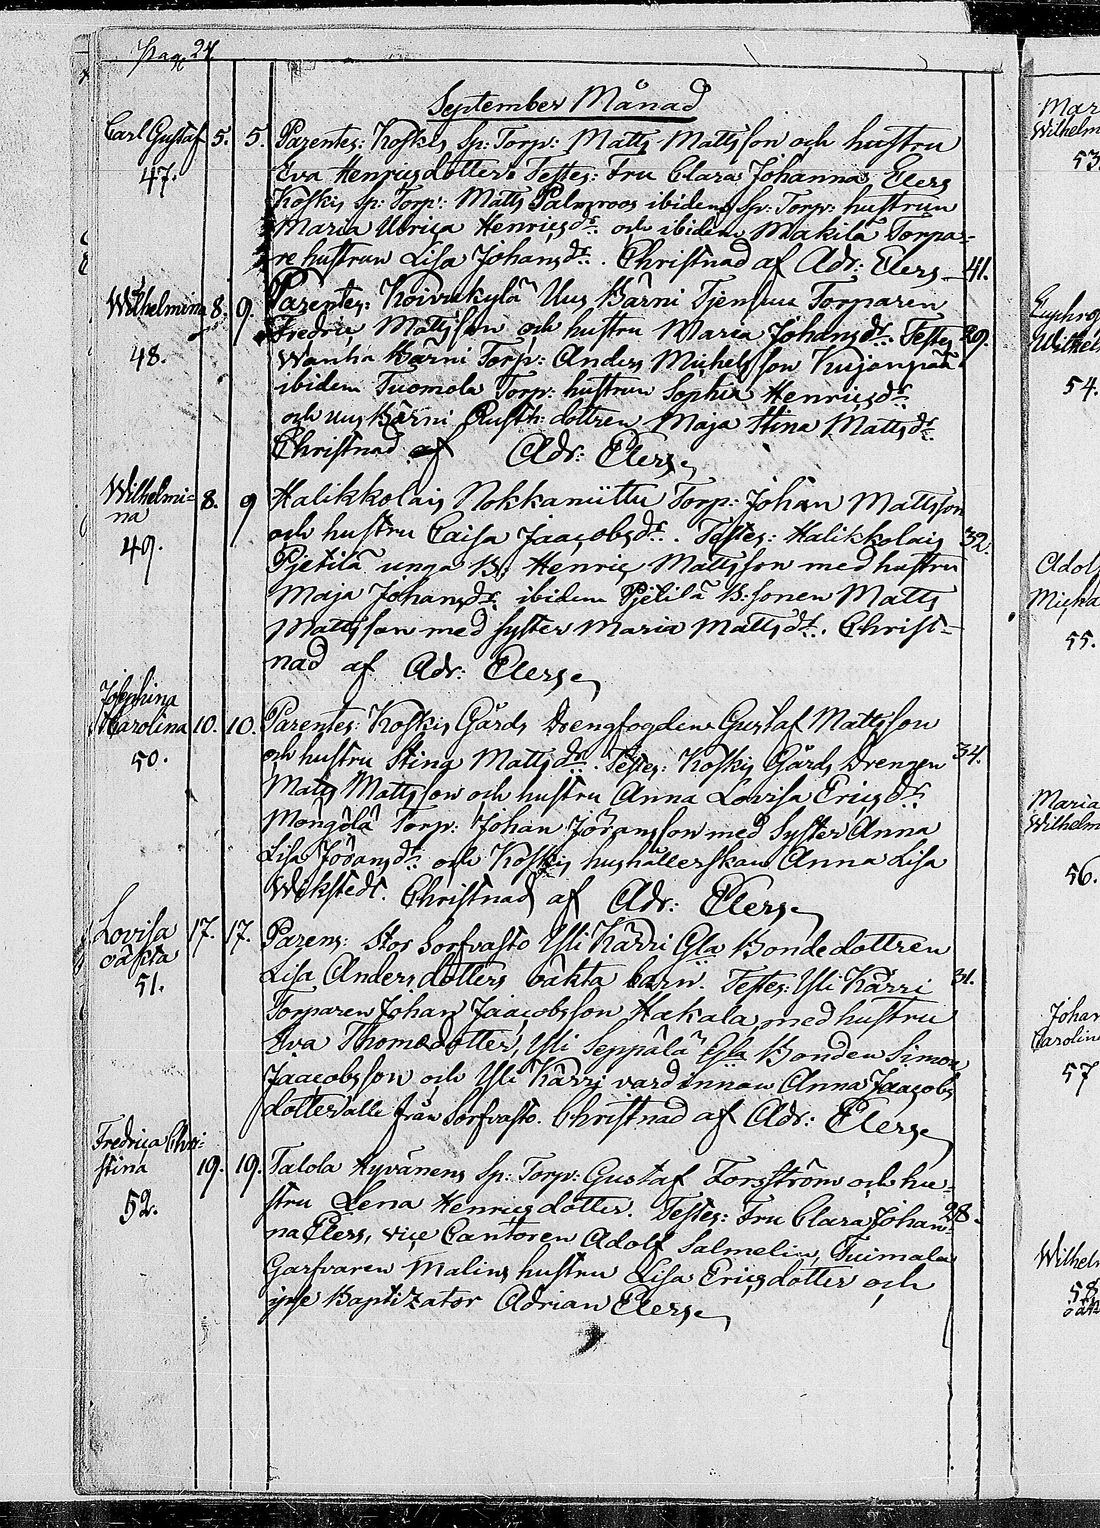 pag. 24
September Månad
Carl Gustaf 5. 5. Parentes: Koskis Sp: Torp: Matts Mattsson och hustru
47. Eva Henricsdotter. Testes: Fru Clara Johanna Elers
Koskis Sp: Torp: Matts Palmroos ibidem Sp: Torp: hustrun
Maria Ulrica Henricsdr: och ibidem Makilä Torpa-
re hustrun Lisa Johansdr. Christnad af Adr: Elers 41.
Wilhelmina 8. 9. Parentes: Koivukylä Uus Kärni Tjensten Torparen
Fredric Mattsson och hustru Maria Johansdr: Testes 29.
48. Wanha Kärni Torp: Anders Michelsson Kujanpää
ibidem Tuomola Torp: hustrun Sophia Henricsdr
och uus Kärni Rusth: dottren Maja Stina Mattsdr:
Christnad af Adr: Elers
Wilhelmi- 8. 9 Halikkolais Nokkaniittu Torp: Johan Mattsson
na och hustru Caisa Jaacobsdr. Testes: Halikkolais 32.
49. Pjetilä unga B: Henric Mattsson med hustru
Maja Johansdr ibidem Pjetilä B:sonen Matts
Mattsson med syster Maria Mattsdr. Christ-
nad af Adr: Elers
Josephina
Carolina 10. 10. Parentes: Koskis Gårds Drengfogden Gustaf Mattsson
50. och hustru Stina Mattsdr. Testes: Koskis Gårds Drengen 34.
Matts Mattsson och hustru Anna Lovisa Ericsdr:
Mongola Torp: Johan Jöransson med syster Anna
Lisa Jöransdr: och Koskis hushållerskan Anna Lisa
Wekstedt. Christnad af Adr: Elers
Lovisa 17. 17. Parens: Stor Sorfvasto Yli Kärri Gla Bondedottren
oäkta Lisa Andersdotters oäkta barn. Testes: Yli Kärri 31.
51. Torparen Johan Jaacobsson Hakala med hustru
Eva Thomædotter, Yli Seppälä Gla Bonden Simon
Jaacobsson och Yli Kärri värdinnan Anna Jaacobs
dotter alle från Sorfvasto. Christnad af Adr: Elers
Fredrica Chri-
stina 19. 19. Talola Hyvänens Sp: Torp: Gustaf Forsström och hu-
52. stru Lena Henricsdotter. Testes: Fru Clara Johan- 28.
na Elers, vice Cantoren Adolf Salmelin, Tuimala
Garfvaren Malins hustru Lisa Ericsdotter och
ipse Baptizator Adrian Elers
Mar
Wilhelm
53.
Euphro
Wilhel
54.
Adol
Micha
55.
Maria
Wilhelm
56.
Johan
Carolin
57
Wilhelm
58